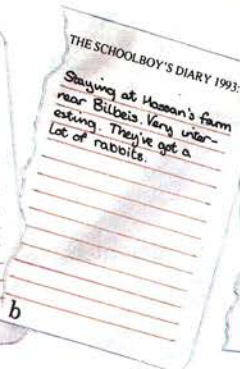 THE SCHOOLBOY'S DIARY 1993:
Staying at Hassan's farm
near Bilbeis. Very inter-
esting. They've got a
lot of rabbits.
b